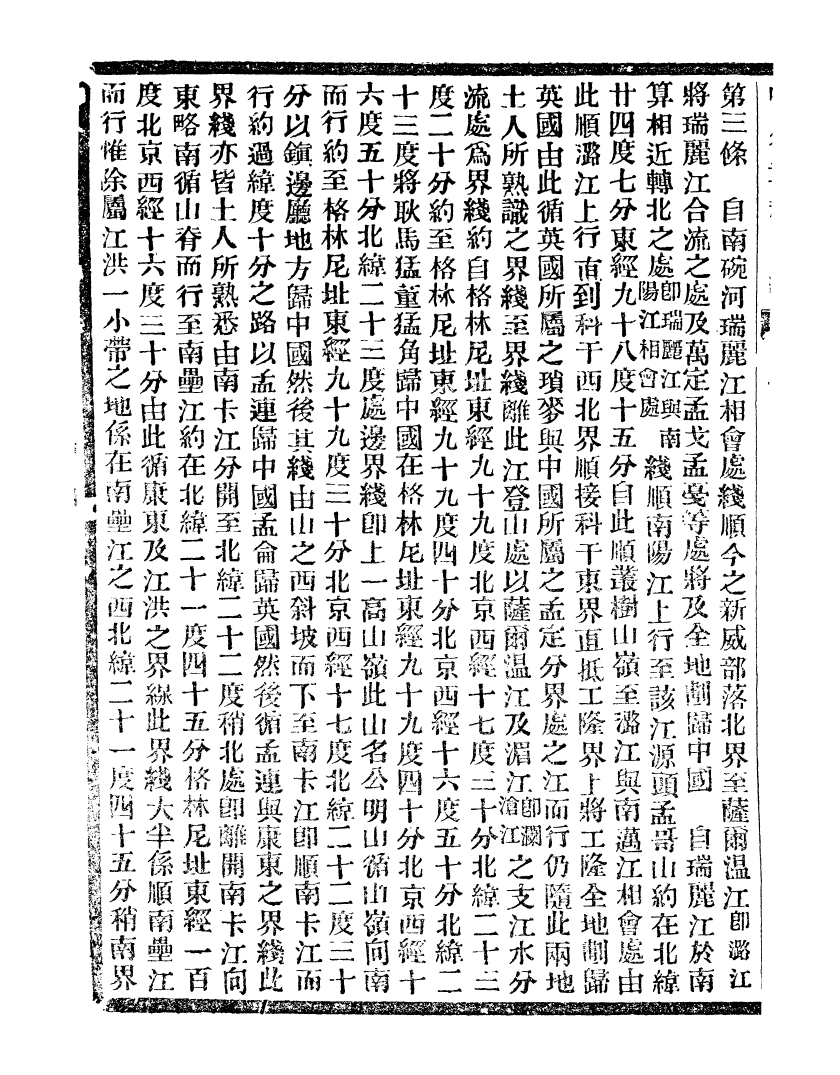 第三條　自南碗河瑞麗江相會處綫順今之新威部落北界至薩爾温江卽潞江
將瑞麗江合流之處及萬定孟戈孟戞等處將及全地劃歸中國　自瑞麗江於南
算相近轉北之處卽瑞麗江與南陽江相會處　綫順南陽江上行至該江源頭孟哥山約在北緯
廿四度七分東經九十八度十五分自此順叢樹山嶺至潞江與南邁江相會處由
此順潞江上行直到科干西北界順接科干東界直抵工隆界上將工隆全地劃歸
英國由此循英國所屬之瑣麥與中國所屬之孟定分界處之江而行仍隨此兩地
土人所熟識之界綫至界綫離此江登山處以薩爾温江及湄江卽瀾滄江之支江水分
流處爲界綫約自格林尼址東經九十九度北京西經十七度三十分北緯二十三
度二十分約至格林尼址東經九十九度四十分北京西經十六度五十分北緯二
十三度將耿馬猛董猛角歸中國在格林尼址東經九十九度四十分北京西經十
六度五十分北緯二十三度處邊界綫卽上一高山嶺此山名公明山循山嶺向南
而行約至格林尼址東經九十九度三十分北京西經十七度北緯二十二度三十
分以鎭邊廳地方歸中國然後其綫由山之西斜坡而下至南卡江卽順南卡江而
行約過緯度十分之路以孟連歸中國孟侖歸英國然後循孟連與康東之界綫此
界綫亦皆土人所熟悉由南卡江分開至北緯二十二度稍北處卽離開南卡江向
東略南循山脊而行至南壘江約在北緯二十一度四十五分格林尼址東經一百
度北京西經十六度三十分由此循康東及江洪之界線此界綫大半係順南壘江
而行惟除屬江洪一小帶之地係在南壘江之西北緯二十一度四十五分稍南界